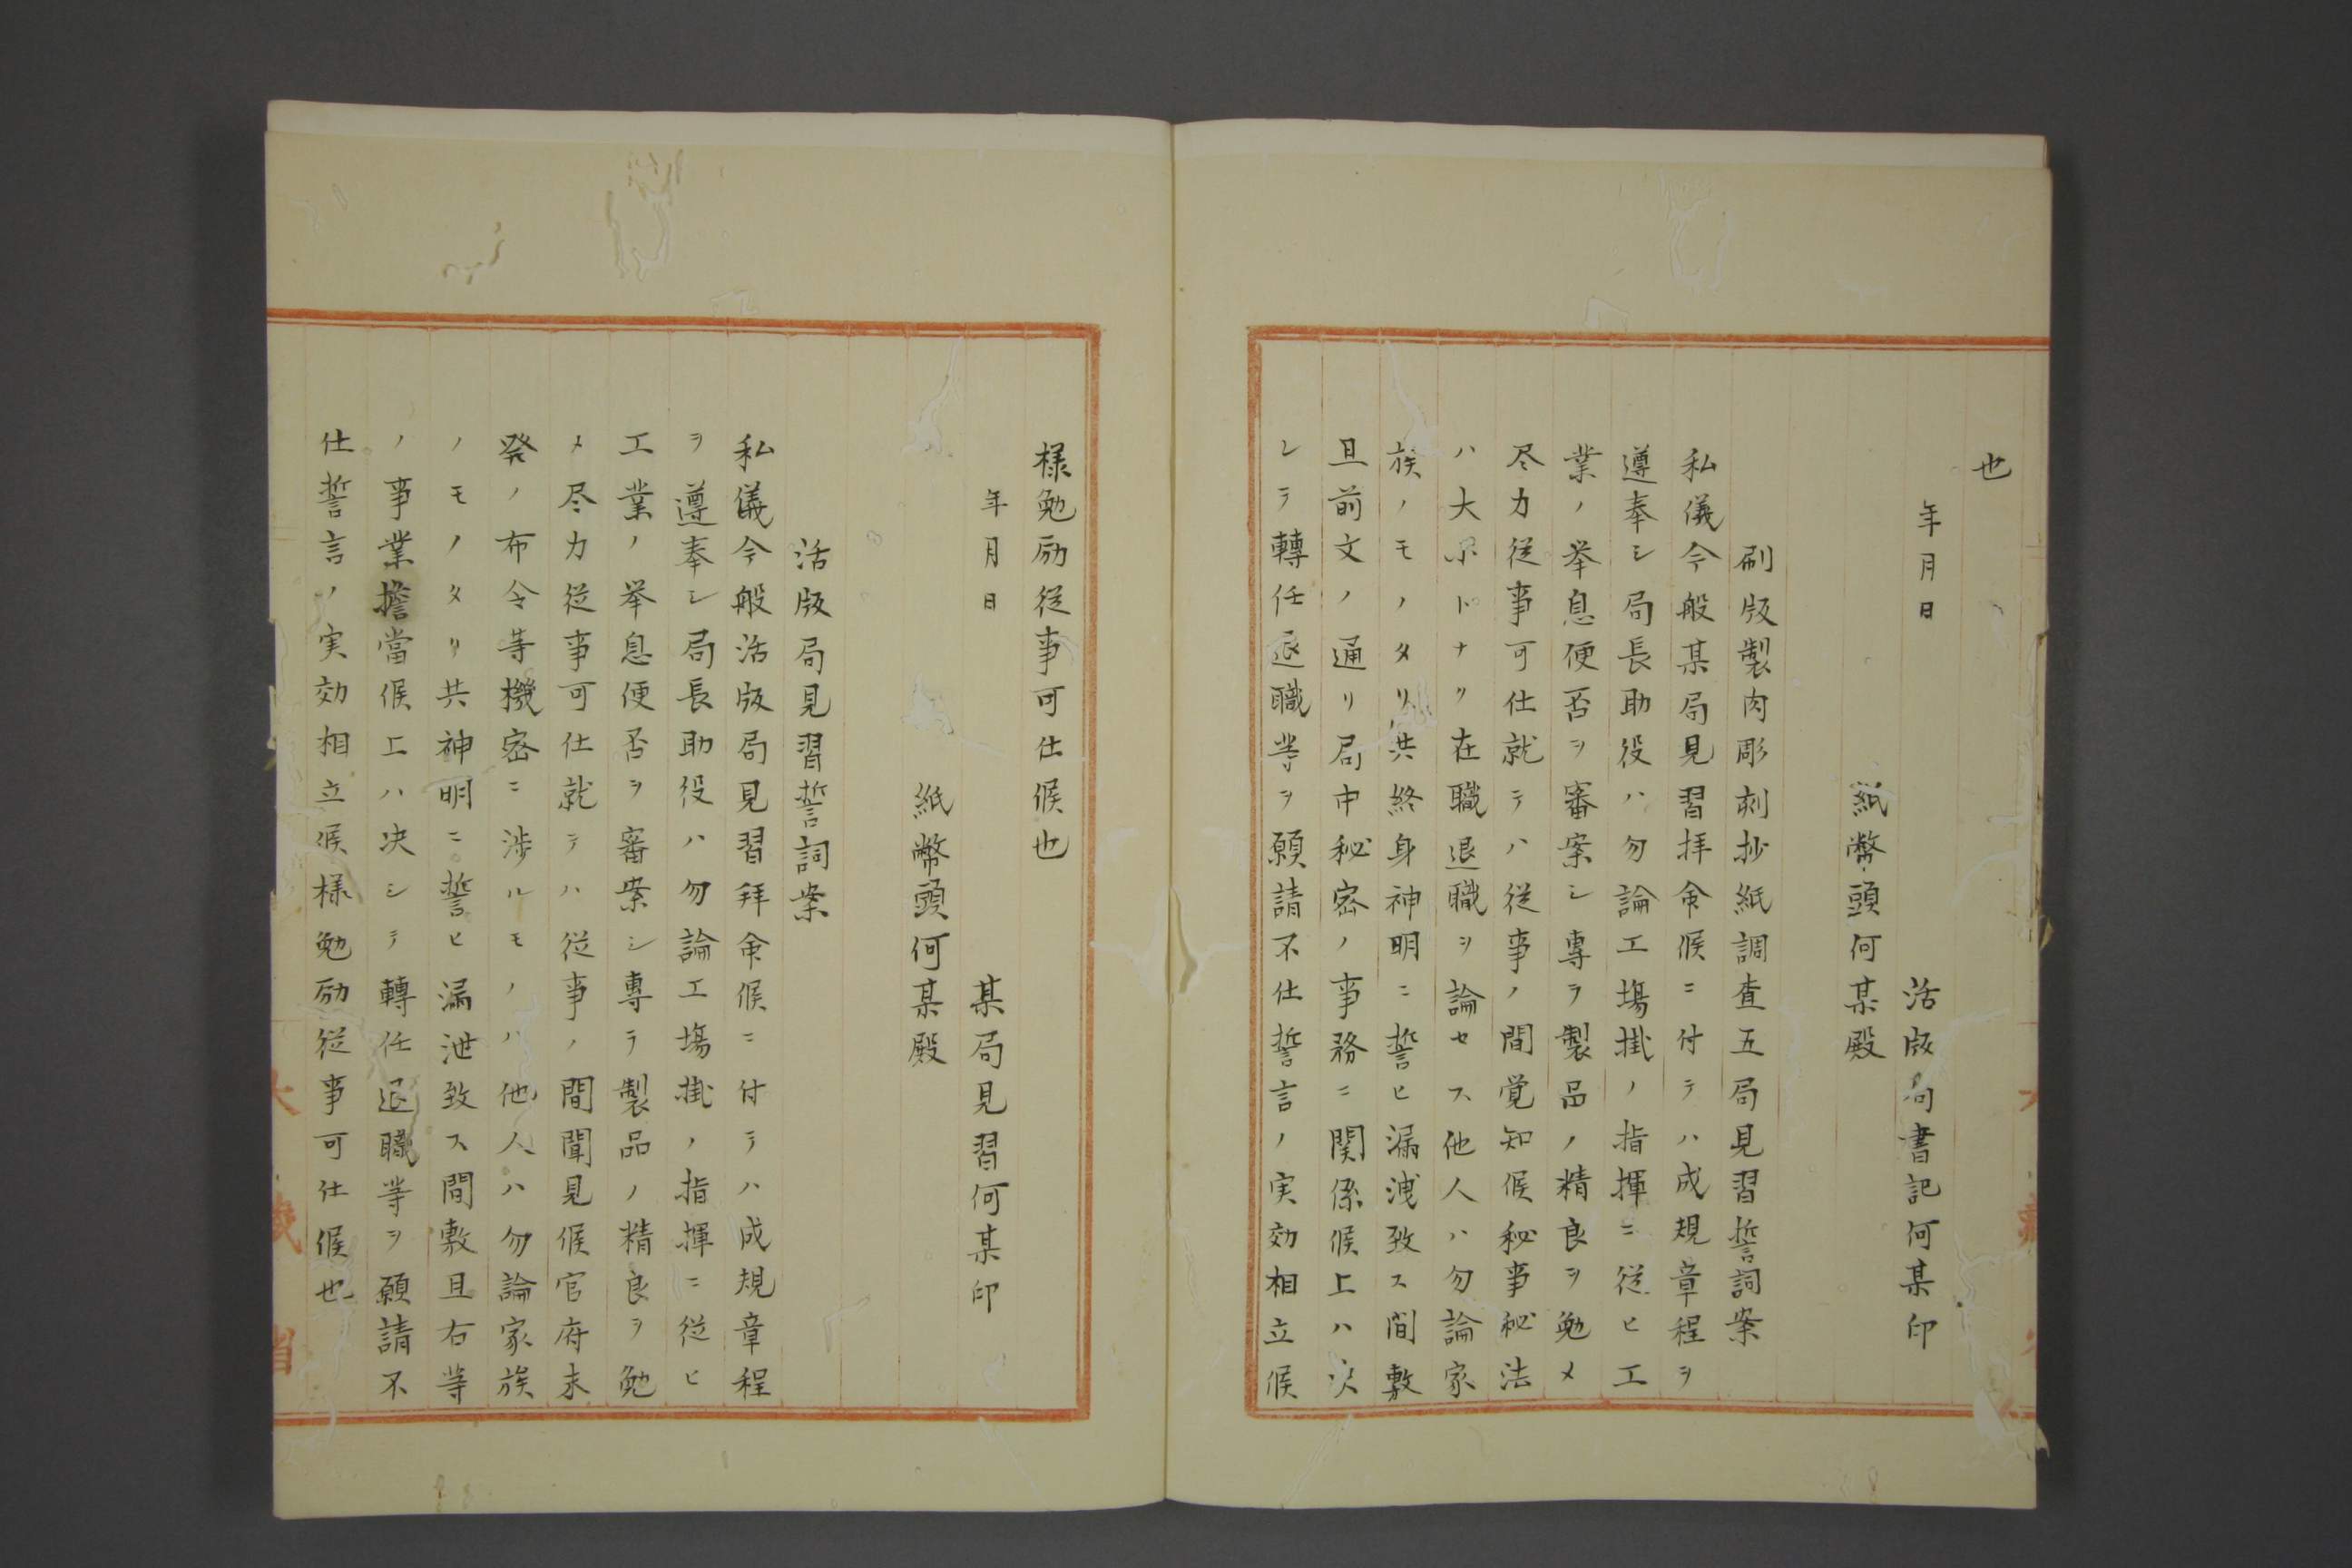 也
年月日
活版局書記何某印
紙幣頭何某殿
刷版製肉彫刻抄紙調査五局見習誓詞案
私儀今般某局見習拝命候ニ付テハ成規章程ヲ
遵奉シ局長助役ハ勿論工場掛ノ指揮ニ従ヒ工
業ノ挙息便否ヲ審案シ専ラ製品ノ精良ヲ勉メ
尽力従事可仕就テハ従事ノ間覚知候秘事秘法
ハ大小トナク在職退職ヲ論セス他人ハ勿論家
族ノモノタリ共終身神明ニ誓ヒ漏洩致ス間敷
且前文ノ通リ局中秘密ノ事務ニ関係候上ハ决
シテ轉任退職等ヲ願請不仕誓言ノ実効相立候
様勉励従事可仕候也
年月日
某局見習何某印
紙幣頭何某殿
活版局見習誓詞案
私儀今般活版局見習拜命候ニ付テハ成規章程
ヲ遵奉シ局長助役ハ勿論工場掛ノ指揮ニ従ヒ
工業ノ挙息便否ヲ審案シ專ラ製品ノ精良ヲ勉
メ尽力従事可仕就テハ従事ノ間聞見候官府未
発ノ布令等機密ニ渉ルモノハ他人ハ勿論家族
ノモノタリ共神明ニ誓ヒ漏泄致ス間敷且右等
ノ事業擔當候上ハ决シテ轉任退職等ヲ願請不
仕誓言ノ実効相立候様勉励従事可仕候也